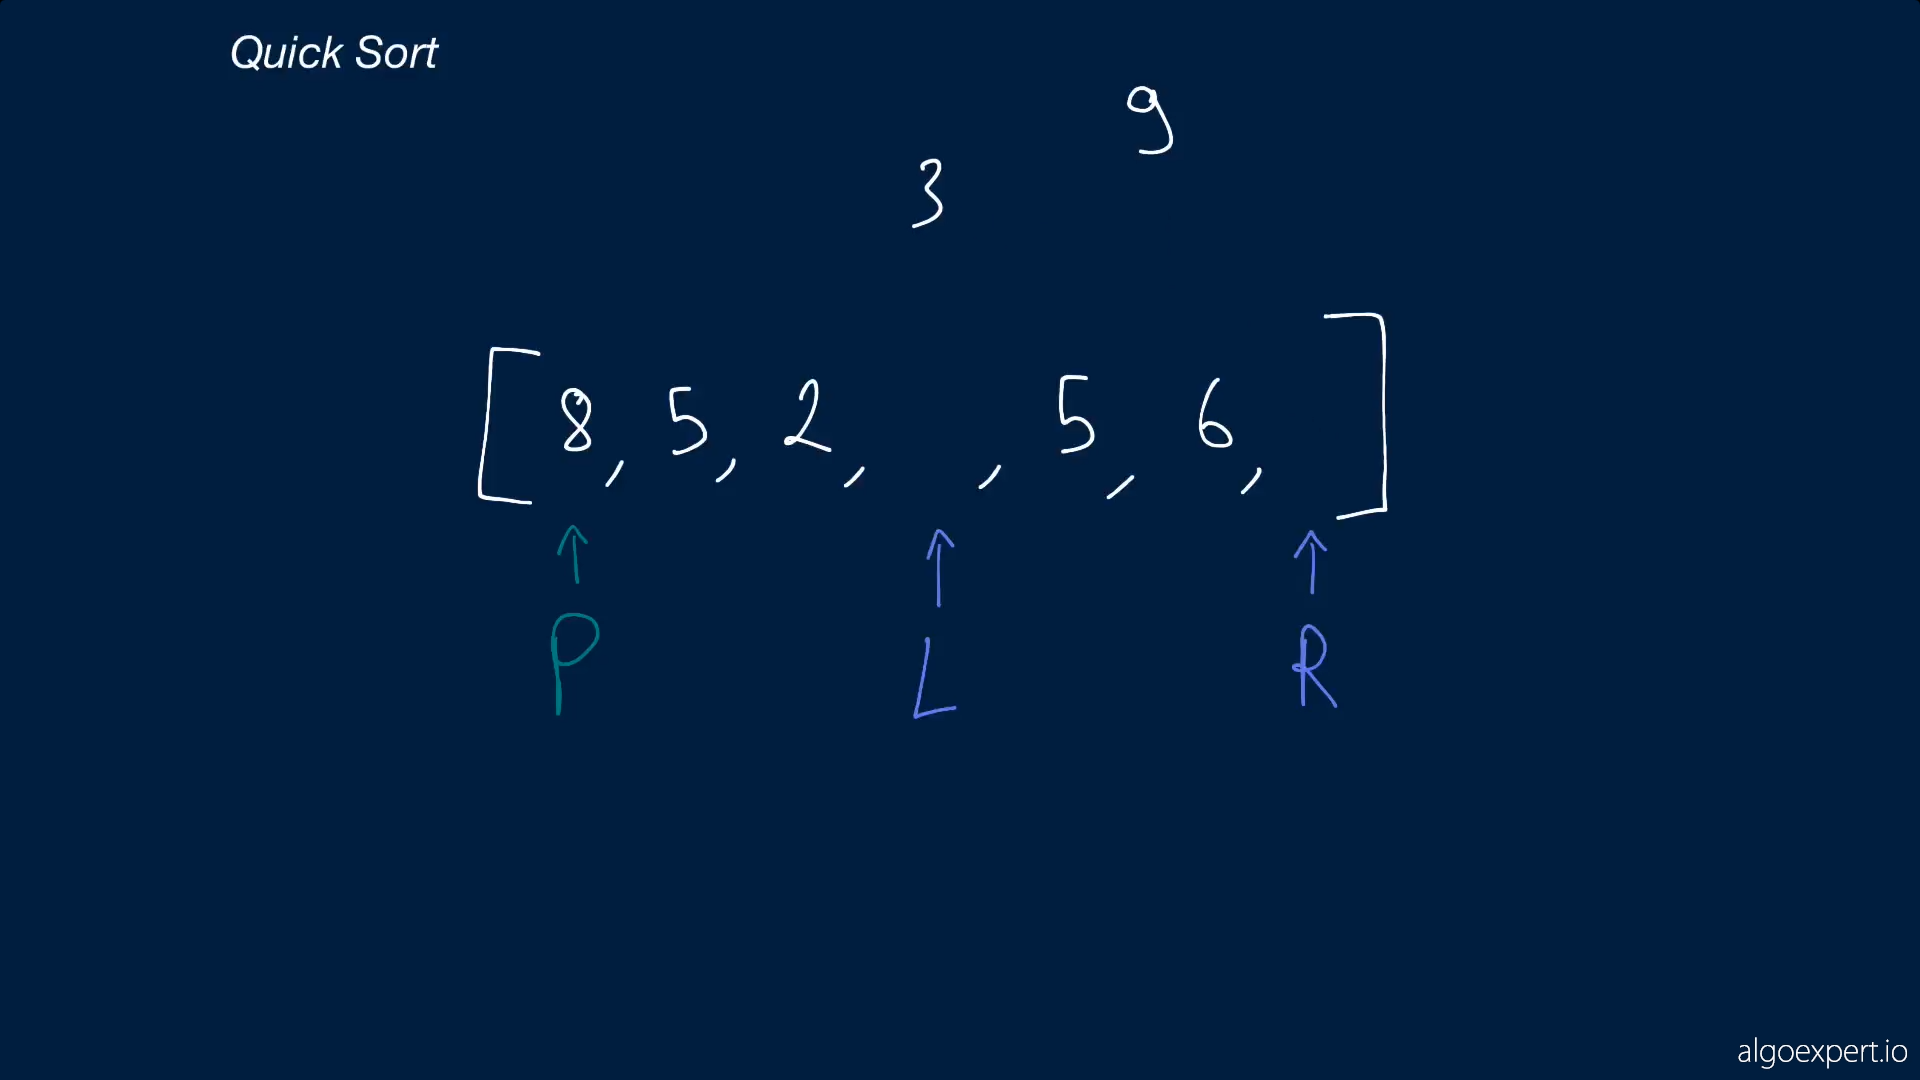 Quick Sort
9
3
[8, 5, 2, , 5, 6, ]
P L R
algoexpert.io